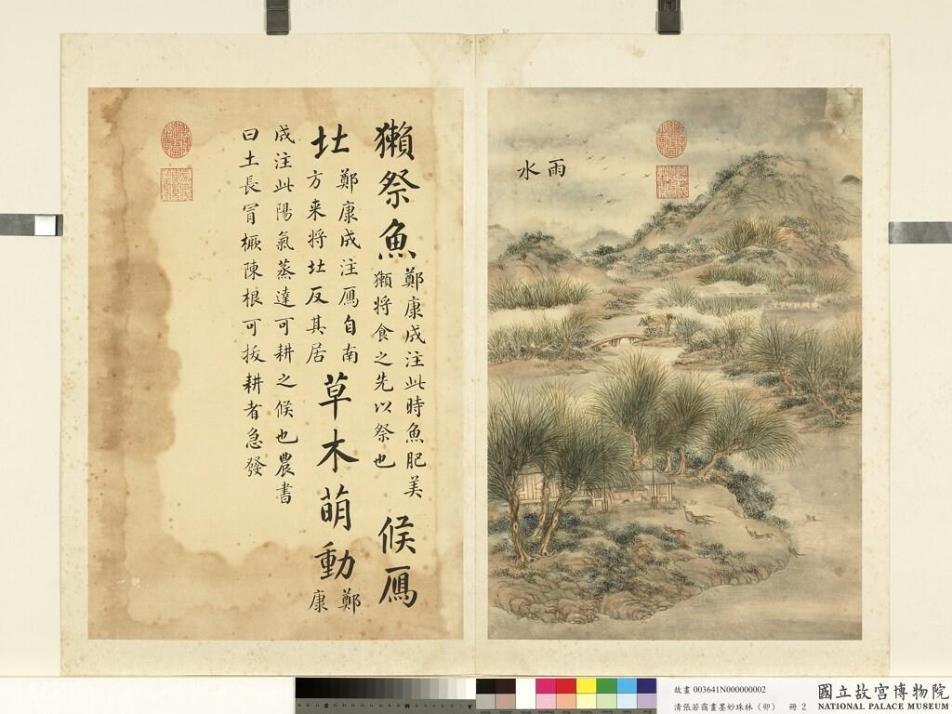 雨水
獺祭魚
鄭康成注此時魚肥美
獺將食之先以祭也
候鴈
北
鄭康成注鴈自南
方来將北反其居
草木萌動
鄭
康
成注此陽氣蒸達可耕之候也農書
曰土長冒橛陳根可拔耕者急發
故畫 003641N000000002
清張若靄畫墨妙珠林（卯） 冊 2
國立故宮博物院
NATIONAL PALACE MUSEUM